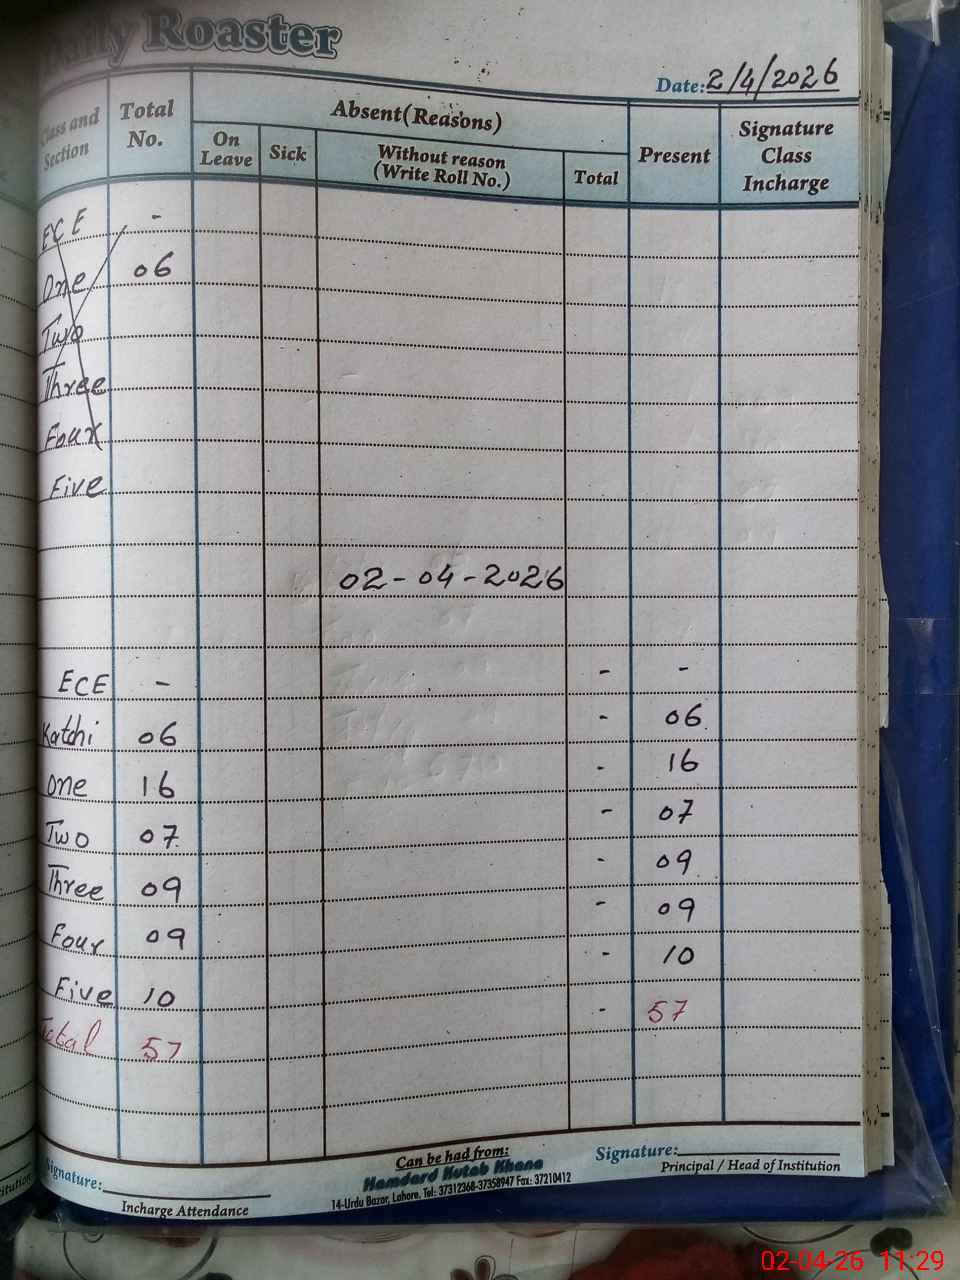 Daily Roaster
Date: 2/4/2026
Class and Section Total No. Absent (Reasons) Present Signature Class Incharge
On Leave Sick Without reason (Write Roll No.) Total
ECE -
One 06
Two
Three
Four
Five
02-04-2026
ECE - - -
Katchi 06 - 06
One 16 - 16
Two 07 - 07
Three 09 - 09
Four 09 - 09
Five 10 - 10
Total 57 - 57
Signature: Can be had from: Signature:
Incharge Attendance Hamdard Kutab Khana Principal / Head of Institution
14-Urdu Bazar, Lahore. Tel: 37312368-37358947 Fax: 37210412
02-04-26 11:29